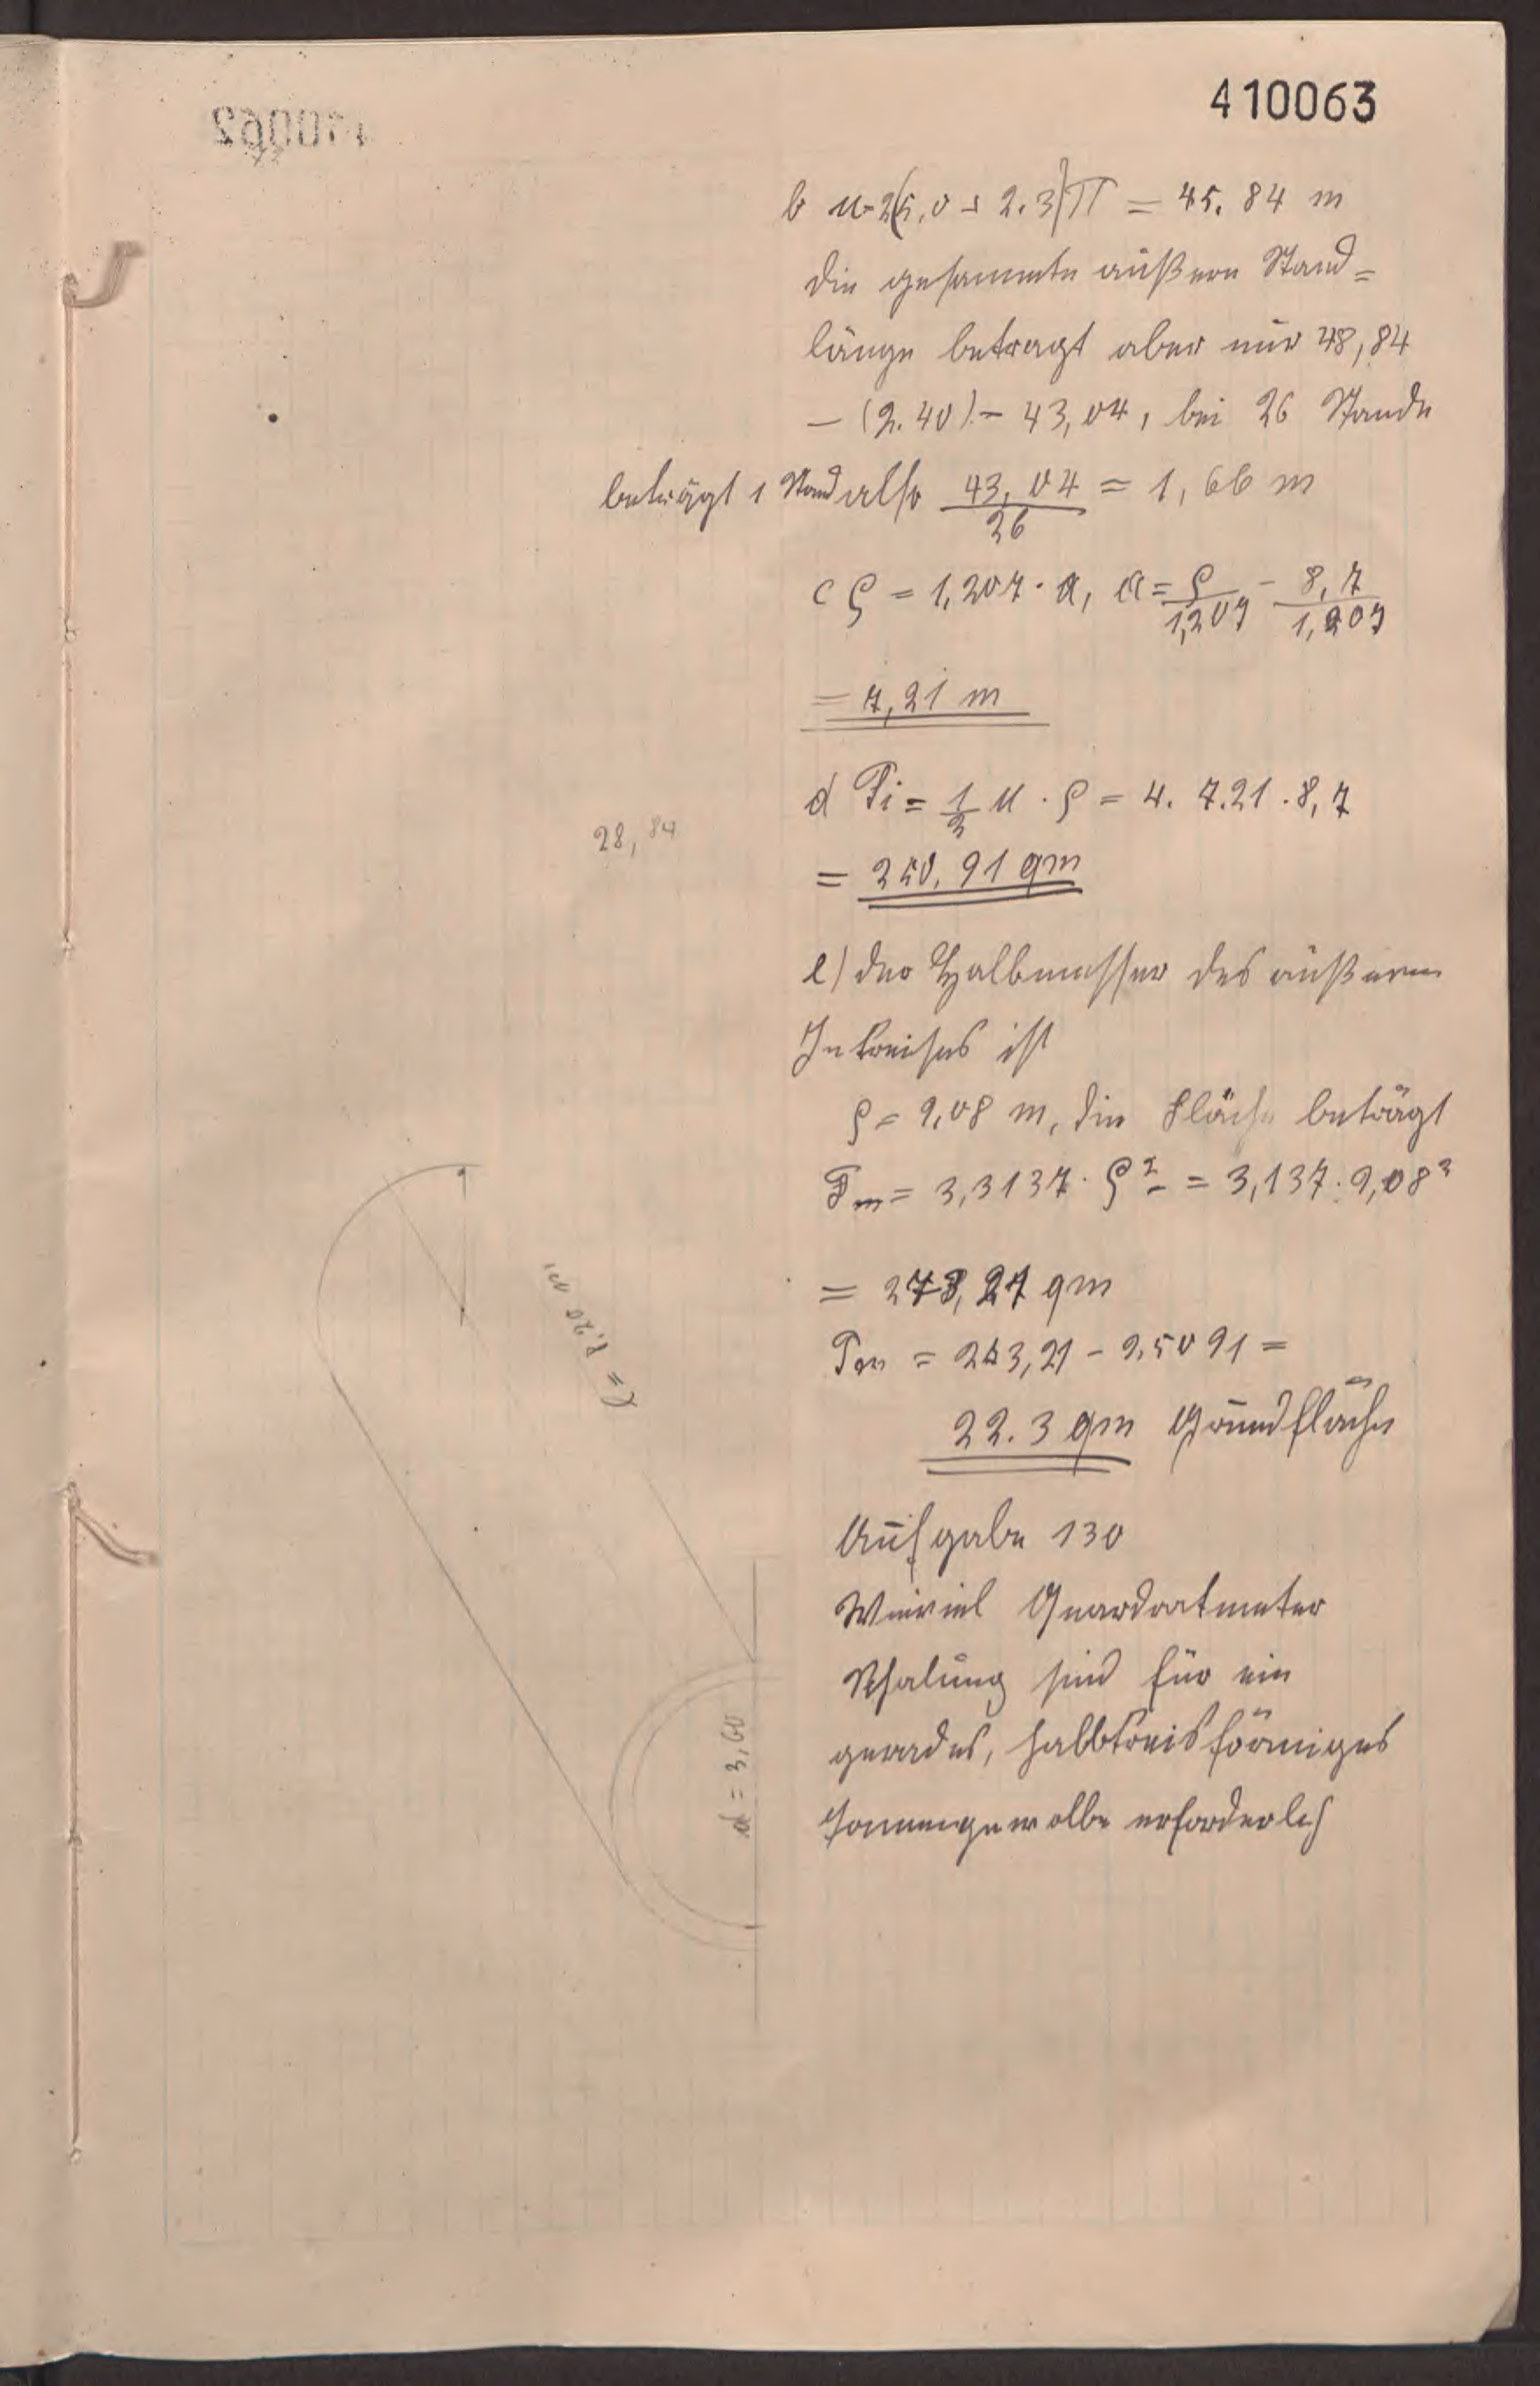 410063
b u=2(5,0+2.3)π = 45.84 m
die gesammte äußere Stand=
länge betragt aber nur 48,84
– (2.40) = 43,04, bei 26 Stande
beträgt 1 Stand also 43,04/26 = 1,66 m
c ρ = 1,207 · a, a = ρ/1,207 = 8,7/1,207
= 7,21 m
d Fi = 1/2 u · ρ = 4. 7.21 . 8,7
28,84
= 250,91 qm
e) der Halbmesser des äußeren
Inkreises ist
ρ = 9,08 m, die Fläche beträgt
Fm = 3,3137 · ρ² = 3,137 . 9,08²
= 273,27 qm
Fm = 273,21 – 2,5091 =
22.3 qm Grundfläche
l = 8,20 m
Aufgabe 130
Wieviel Quardratmeter
Schalung sind für ein
gerades, halbkreisförmiges
Tonnengewolbe erforderlich
d = 3,60